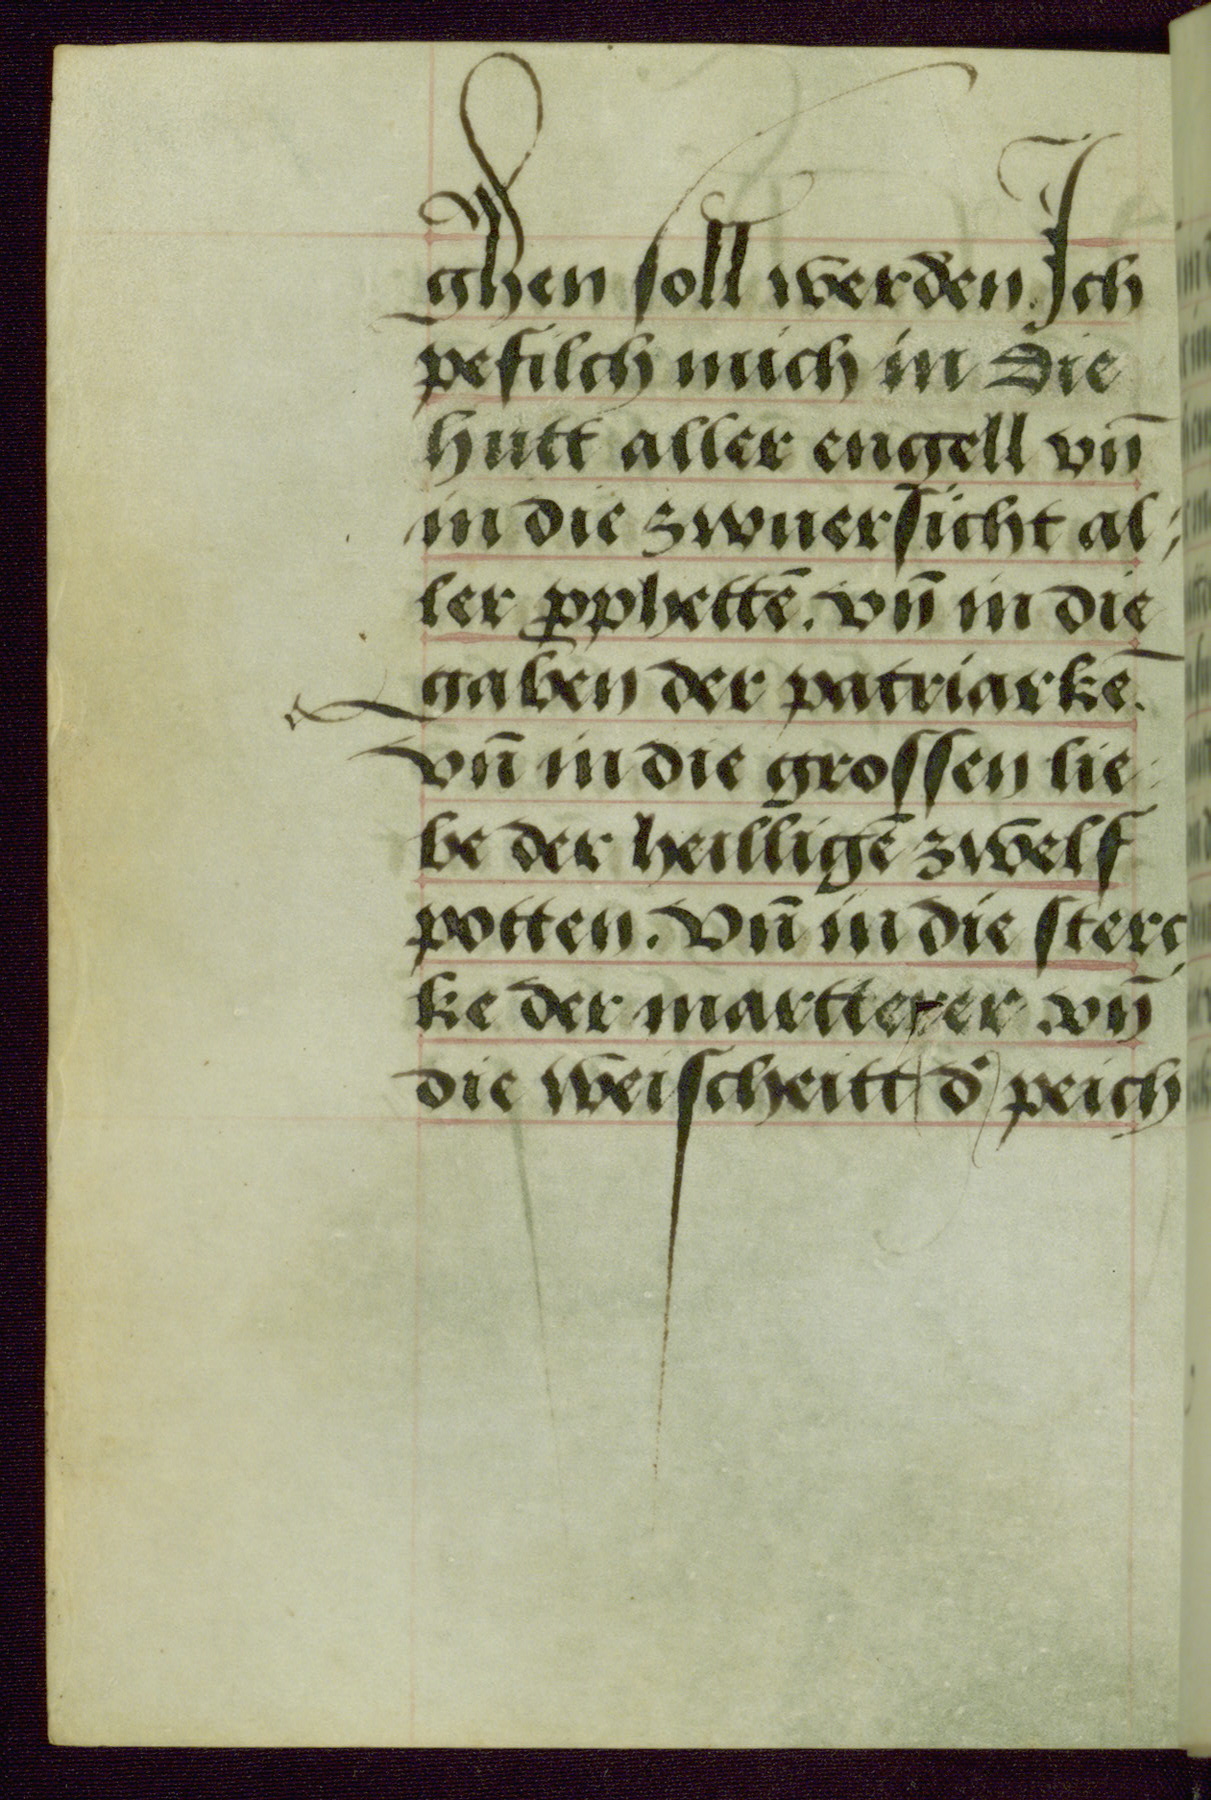 ghen soll werden. Ich
pefilch mich in die
hutt aller engell vn̄
in die zwuersicht al⸗
ler ꝓphettē. vn̄ in die
gaben der patriarkē.
vn̄ in die grossen lie⸗
be der heilligē zwelf
potten. Vn̄ in die sterc
ke der martterer .vn̄
die weischeitt d̕ peich